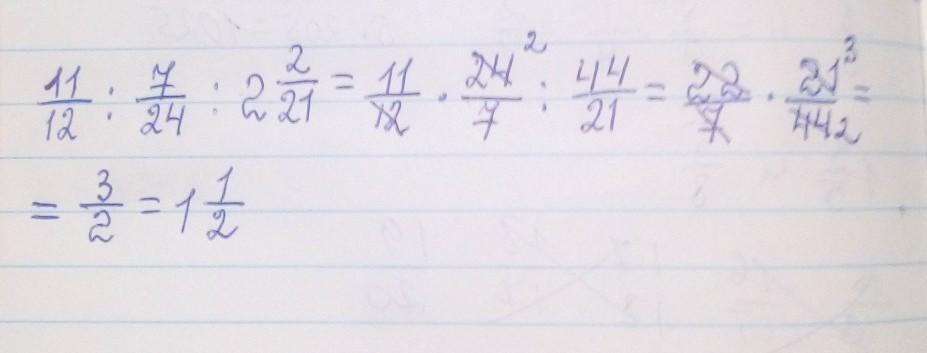 11/12 : 7/24 : 2 2/21 = 11/12 · 24²/7 : 44/21 = 22/7 · 21³/44₂ =
= 3/2 = 1 1/2